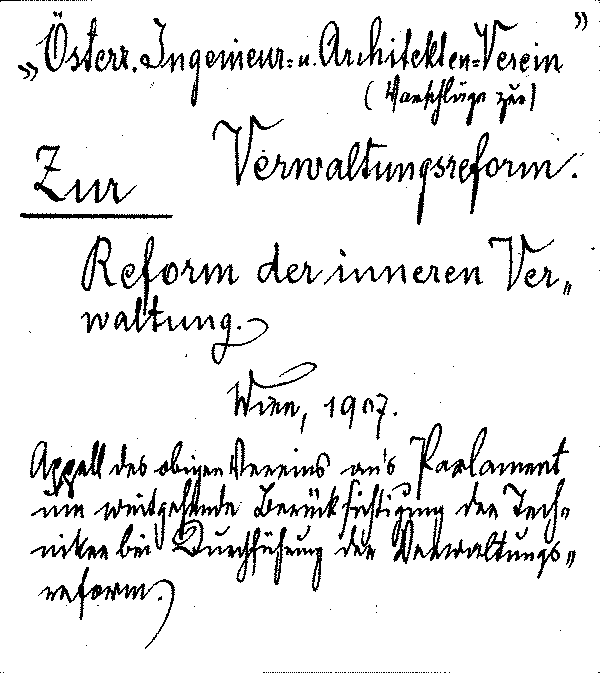 „Österr. Ingenieur= u. Architekten=Verein”
(Vorschläge zur)
Zur Verwaltungsreform.
Reform der inneren Ver„
waltung.
Wien, 1907.
Appell des obigen Vereins an's Parlament
um weitgehende Berücksichtigung der Tech=
niker bei Durchführung der Verwaltungs=
reform.